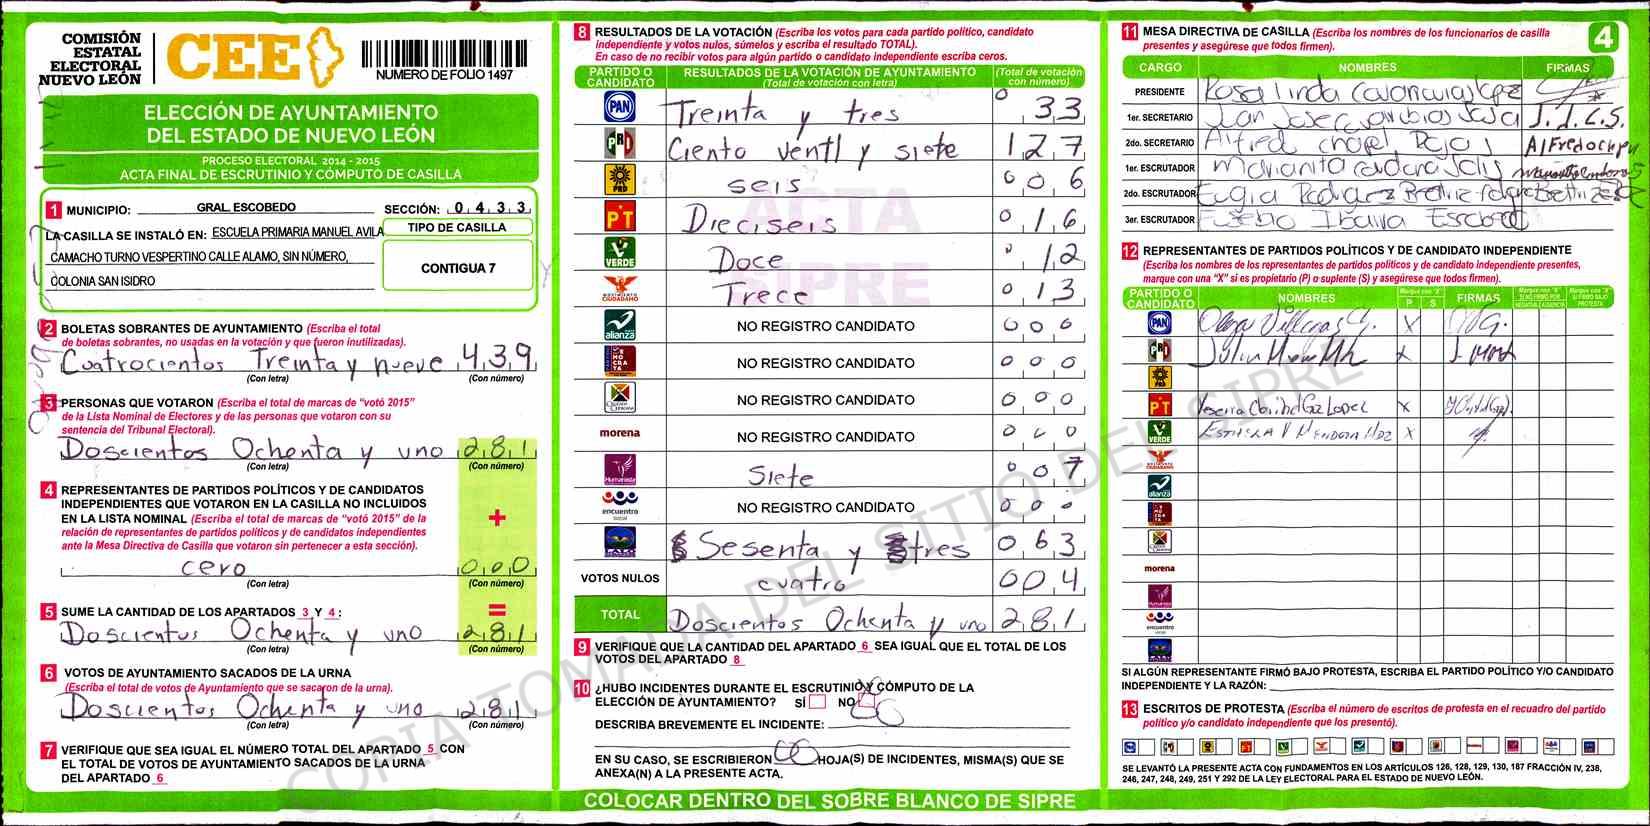 COMISIÓN
ESTATAL
ELECTORAL
NUEVO LEÓN
CEE
NUMERO DE FOLIO 1497
ELECCIÓN DE AYUNTAMIENTO
DEL ESTADO DE NUEVO LEÓN
PROCESO ELECTORAL 2014 - 2015
ACTA FINAL DE ESCRUTINIO Y CÓMPUTO DE CASILLA
1 MUNICIPIO: GRAL. ESCOBEDO SECCIÓN: 0 4 3 3
LA CASILLA SE INSTALÓ EN: ESCUELA PRIMARIA MANUEL AVILA
CAMACHO TURNO VESPERTINO CALLE ALAMO, SIN NÚMERO,
COLONIA SAN ISIDRO
TIPO DE CASILLA
CONTIGUA 7
2 BOLETAS SOBRANTES DE AYUNTAMIENTO (Escriba el total
de boletas sobrantes, no usadas en la votación y que fueron inutilizadas).
Cuatrocientos Treinta y nueve 4 3 9
(Con letra) (Con número)
3 PERSONAS QUE VOTARON (Escriba el total de marcas de "votó 2015"
de la Lista Nominal de Electores y de las personas que votaron con su
sentencia del Tribunal Electoral).
Doscientos Ochenta y uno 2 8 1
(Con letra) (Con número)
4 REPRESENTANTES DE PARTIDOS POLÍTICOS Y DE CANDIDATOS
INDEPENDIENTES QUE VOTARON EN LA CASILLA NO INCLUIDOS
EN LA LISTA NOMINAL (Escriba el total de marcas de "votó 2015" de la
relación de representantes de partidos políticos y de candidatos independientes
ante la Mesa Directiva de Casilla que votaron sin pertenecer a esta sección).
+
cero 0 0 0
(Con letra) (Con número)
5 SUME LA CANTIDAD DE LOS APARTADOS 3 Y 4 : =
Doscientos Ochenta y uno 2 8 1
(Con letra) (Con número)
6 VOTOS DE AYUNTAMIENTO SACADOS DE LA URNA
(Escriba el total de votos de Ayuntamiento que se sacaron de la urna).
Doscientos Ochenta y uno 2 8 1
(Con letra) (Con número)
7 VERIFIQUE QUE SEA IGUAL EL NÚMERO TOTAL DEL APARTADO 5 CON
EL TOTAL DE VOTOS DE AYUNTAMIENTO SACADOS DE LA URNA
DEL APARTADO 6
8 RESULTADOS DE LA VOTACIÓN (Escriba los votos para cada partido político, candidato
independiente y votos nulos, súmelos y escriba el resultado TOTAL).
En caso de no recibir votos para algún partido o candidato independiente escriba ceros.
PARTIDO O CANDIDATO RESULTADOS DE LA VOTACIÓN DE AYUNTAMIENTO (Total de votación con letra) (Total de votación con número)
PAN Treinta y tres 0 3 3
PRD Ciento ventI y siete 1 2 7
PRD seis 0 0 6
PT Dieciseis 0 1 6
VERDE Doce 0 1 2
MOVIMIENTO CIUDADANO Trece 0 1 3
alianza NO REGISTRO CANDIDATO 0 0 0
NO REGISTRO CANDIDATO 0 0 0
NO REGISTRO CANDIDATO 0 0 0
morena NO REGISTRO CANDIDATO 0 0 0
Humanista Siete 0 0 7
encuentro social NO REGISTRO CANDIDATO 0 0 0
Sesenta y tres 0 6 3
VOTOS NULOS cuatro 0 0 4
TOTAL Doscientos Ochenta y uno 2 8 1
9 VERIFIQUE QUE LA CANTIDAD DEL APARTADO 6 SEA IGUAL QUE EL TOTAL DE LOS
VOTOS DEL APARTADO 8
10 ¿HUBO INCIDENTES DURANTE EL ESCRUTINIO Y CÓMPUTO DE LA
ELECCIÓN DE AYUNTAMIENTO? SÍ NO
DESCRIBA BREVEMENTE EL INCIDENTE:
EN SU CASO, SE ESCRIBIERON 00 HOJA(S) DE INCIDENTES, MISMA(S) QUE SE
ANEXA(N) A LA PRESENTE ACTA.
COLOCAR DENTRO DEL SOBRE BLANCO DE SIPRE
ACTA
SIPRE
COPIA TOMADA DEL SITIO DEL SIPRE
4
11 MESA DIRECTIVA DE CASILLA (Escriba los nombres de los funcionarios de casilla
presentes y asegúrese que todos firmen).
CARGO NOMBRES FIRMAS
PRESIDENTE Rosalinda
1er. SECRETARIO Juan Jose J.J.C.S.
2do. SECRETARIO Alfred
1er. ESCRUTADOR
2do. ESCRUTADOR
3er. ESCRUTADOR Eusebio Ibarra
12 REPRESENTANTES DE PARTIDOS POLÍTICOS Y DE CANDIDATO INDEPENDIENTE
(Escriba los nombres de los representantes de partidos políticos y de candidato independiente presentes,
marque con una "X" si es propietario (P) o suplente (S) y asegúrese que todos firmen).
PARTIDO O CANDIDATO NOMBRES P S FIRMAS
PAN X
PRD X
PRD
PT Lopez X
VERDE Mendoza X
alianza
morena
encuentro social
SI ALGÚN REPRESENTANTE FIRMÓ BAJO PROTESTA, ESCRIBA EL PARTIDO POLÍTICO Y/O CANDIDATO
INDEPENDIENTE Y LA RAZÓN:
13 ESCRITOS DE PROTESTA (Escriba el número de escritos de protesta en el recuadro del partido
político y/o candidato independiente que los presentó).
SE LEVANTÓ LA PRESENTE ACTA CON FUNDAMENTOS EN LOS ARTÍCULOS 126, 128, 129, 130, 187 FRACCIÓN IV, 238,
246, 247, 248, 249, 251 Y 292 DE LA LEY ELECTORAL PARA EL ESTADO DE NUEVO LEÓN.